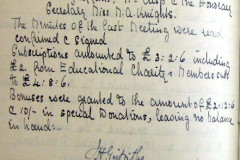 Secretary Miss M.A. Knights.
The Minutes of the Last Meeting were read
confirmed & signed
Subscriptions amounted to £3:2:6 including
£2 from Educational Charity & Members subs
to £4:8:6.
Bonuses were granted to the amount of
& 10/- in special Donations, leaving no balance
in hand.